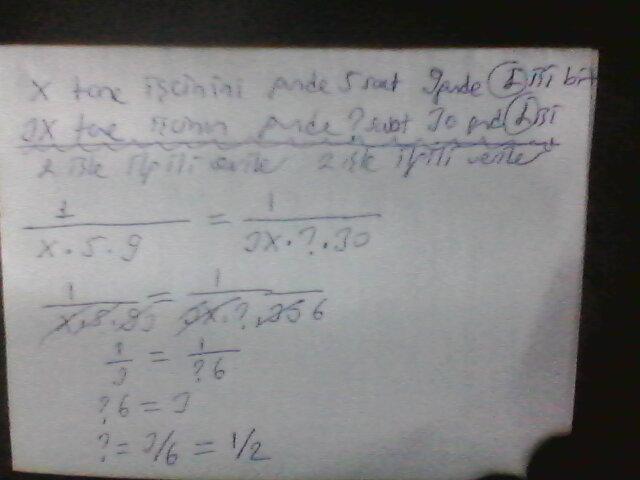 x tane işçinini günde 5 saat 9 günde 1 işi bit
3x tane işçinin günde ? saat 30 günd 1 işi
2 işle ilgili verile 2 işle ilgili verile
1 / x.5.9 = 1 / 3x.?.30
1 / x.5.93 = 1 / 3x.?.306
1/3 = 1/?6
?6 = 3
? = 3/6 = 1/2